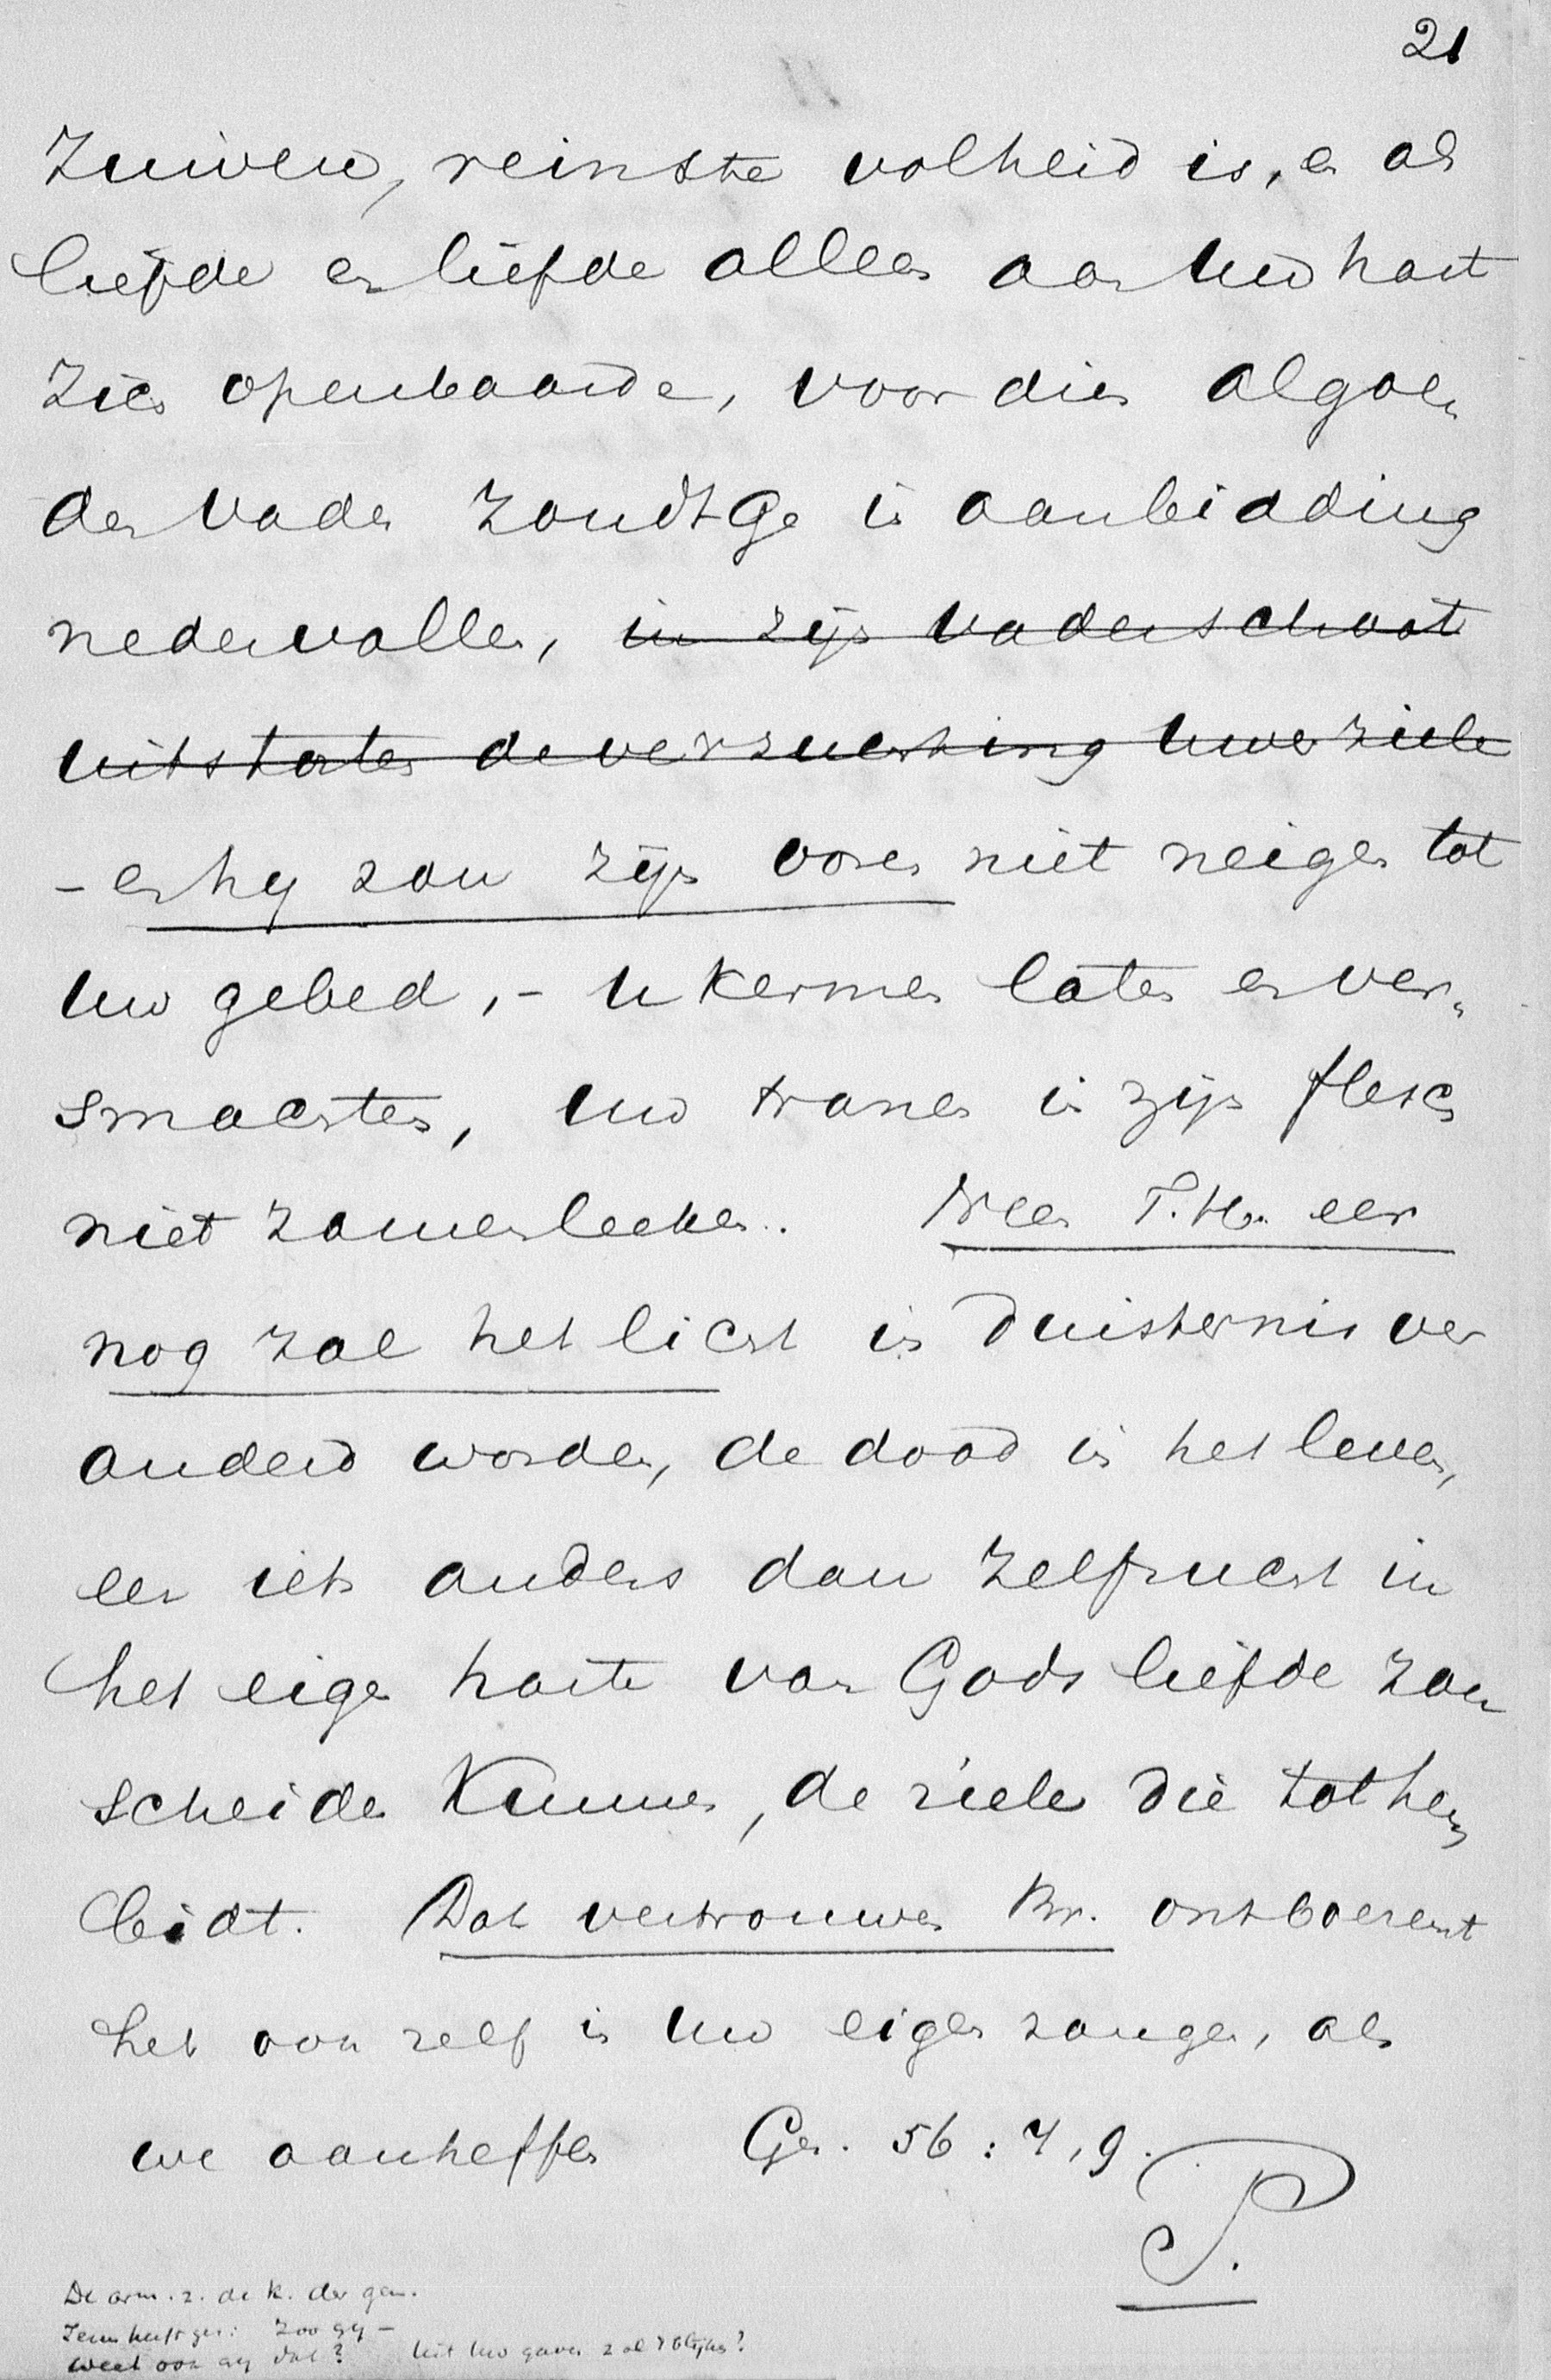 21
zuivere, reinste volheid is, en als
liefde en liefde alleen aan uw hart
zich openbaarde, voor dien algoe„
den Vader zoudt Ge in aanbidding
nedervallen, in zijn vaderschoot
uitstorten de verzuchting uwer ziele
- en hij zou zijn ooren niet neigen tot
uw gebed, - u kermen laten en ver„
smachten, uw tranen in zijn flesch
niet zamenlezen. Neen T. H. eer
nog zal het licht in duisternis ver
anderd worden, de dood in het leven,
eer iets anders dan zelfzucht in
het eigen harte van Gods liefde zou
scheiden kunnen, de ziele die tot hem
bidt. Dat vertrouwen Br. ontboezemt
het ook zelf in uw eigen zangen, als
we aanheffen Gez. 56 : 7, 9.
P.
De arm. z. de k. der gem.
Jezus heeft gez: Zoo gij -
Weet ook gij dat? Uit uw gaven zal 't blijken?